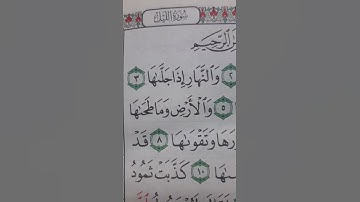 سُورَةُ اللَّيْلِ
ٱلرَّحِيمِ
٢ وَٱلنَّهَارِ إِذَا جَلَّىٰهَا ٣
٥ وَٱلْأَرْضِ وَمَا طَحَىٰهَا
رَهَا وَتَقْوَىٰهَا ٨ قَدْ
ىٰهَا ١٠ كَذَّبَتْ ثَمُودُ